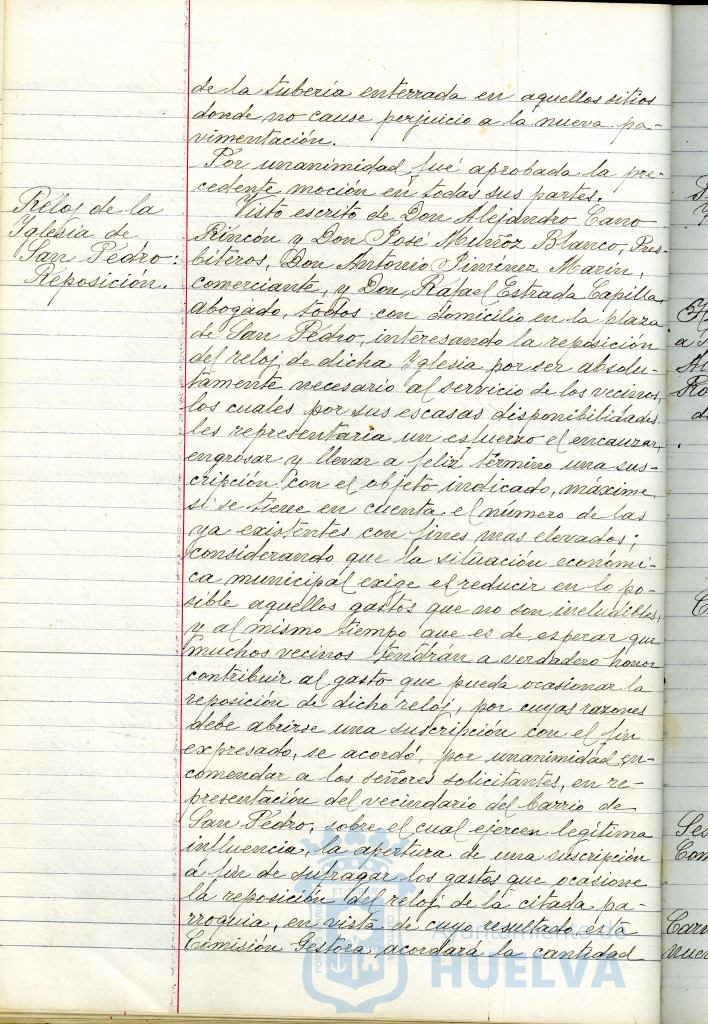 de la tubería enterrada en aquellos sitios
donde no cause perjuicio a la nueva pa-
vimentación.
Por unanimidad fué aprobada la pre-
cedente moción en todas sus partes.
Reloj de la
Iglesia de
San Pedro:
Reposición.
Visto escrito de Don Alejandro Cano
Rincón y Don José Muñoz Blanco, Pres-
bíteros, Don Antonio Jiménez Marín,
comerciante, y Don Rafael Estrada Capilla,
abogado, todos con domicilio en la plaza
de San Pedro, interesando la reposición
del reloj de dicha Iglesia por ser absolu-
tamente necesario al servicio de los vecinos,
los cuales por sus escasas disponibilidades
les representaría un esfuerzo el encauzar,
engrosar y llevar a feliz término una sus-
cripción con el objeto indicado, máxime,
si se tiene en cuenta el número de las
ya existentes con fines mas elevados;
considerando que la situación económi-
ca municipal exige el reducir en lo po-
sible aquellos gastos que no son ineludibles,
y al mismo tiempo que es de esperar que
muchos vecinos tendrán a verdadero honor
contribuir al gasto que pueda ocasionar la
reposición de dicho reloj, por cuyas razones
debe abrirse una suscripción con el fin
expresado, se acordó, por unanimidad en-
comendar a los señores solicitantes, en re-
presentación del vecindario del barrio de
San Pedro, sobre el cual ejercen legítima
influencia, la apertura de una suscripción
á fin de sufragar los gastos que ocasione
la reposición del reloj de la citada pa-
rroquia, en vista de cuyo resultado esta
Comisión Gestora acordará la cantidad
Ayuntamiento de
HUELVA